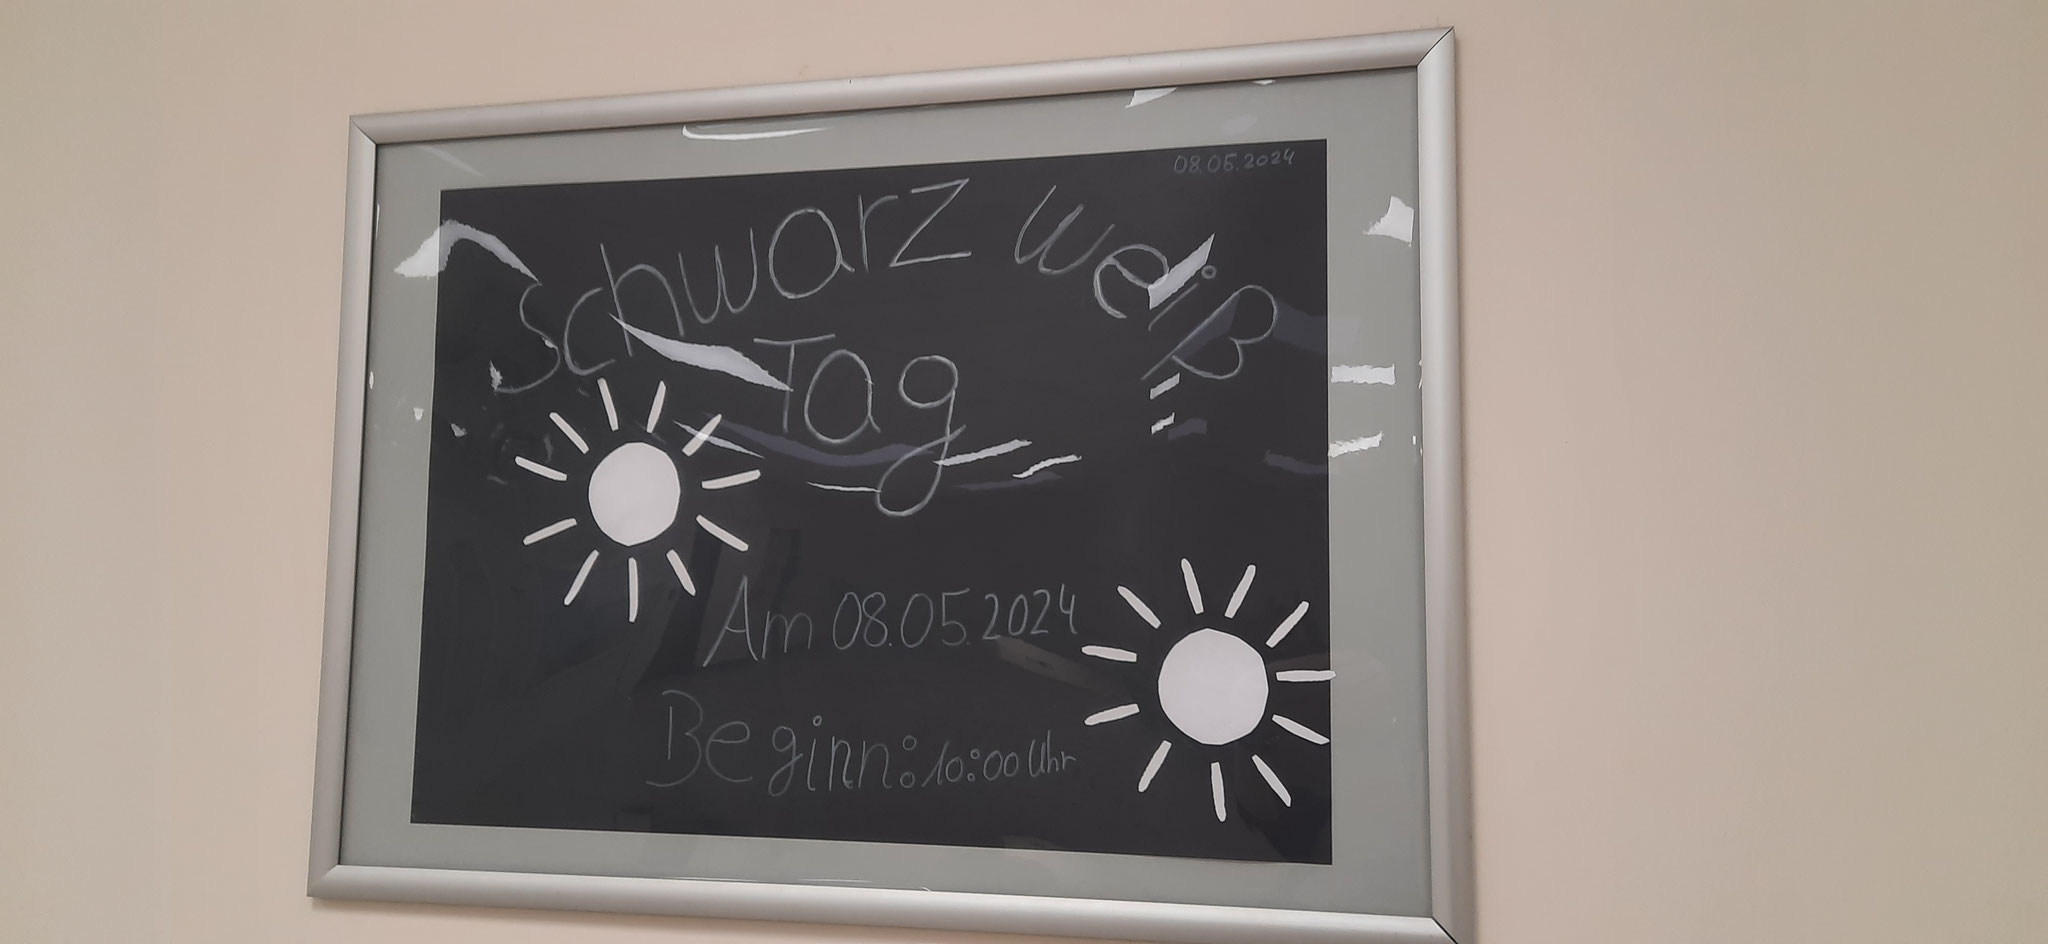 08.05.2024
Schwarz weiß
Tag
Am 08.05.2024
Beginn: 10:00 Uhr